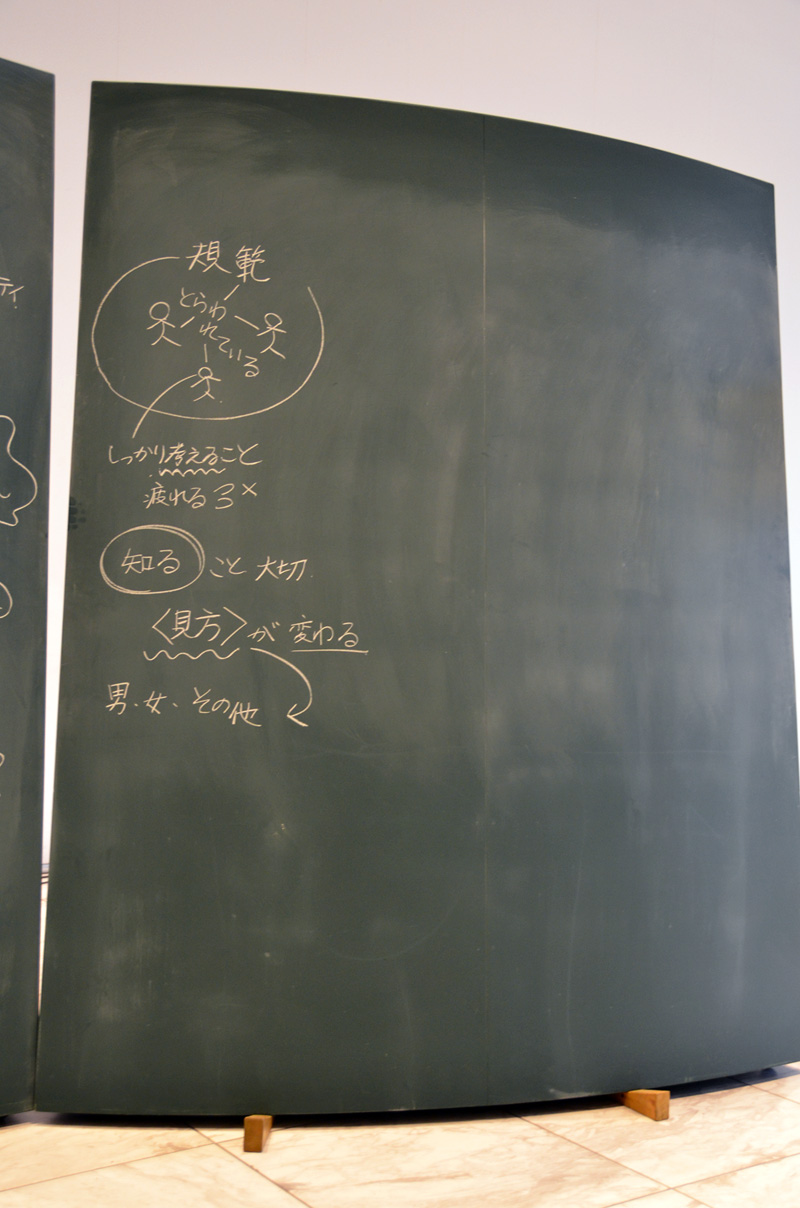 ティ
規範
とらわ
れている
しっかり考えること
疲れる
知ること大切.
〈見方〉が変わる
男、女、その他